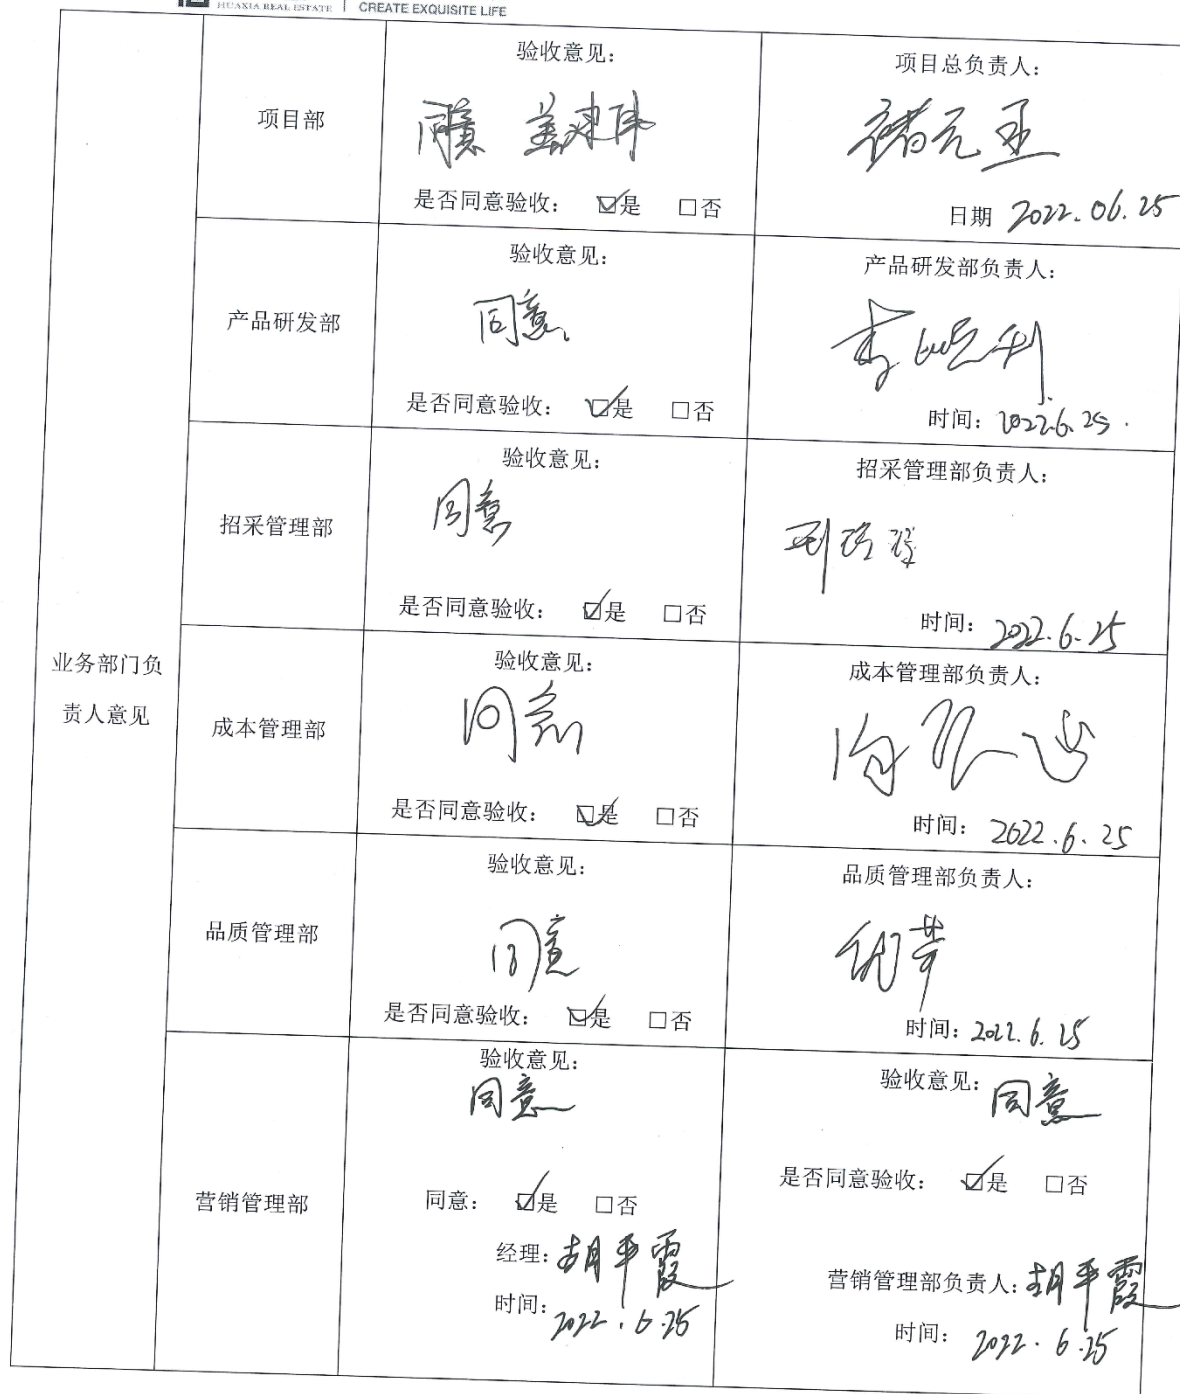 HUAXIA REAL ESTATE CREATE EXQUISITE LIFE
业务部门负
责人意见
项目部
验收意见：
同意
是否同意验收： ☑是 □否
项目总负责人：
日期 2022.06.25
产品研发部
验收意见：
同意
是否同意验收： ☑是 □否
产品研发部负责人：
时间：2022.6.25.
招采管理部
验收意见：
同意
是否同意验收： ☑是 □否
招采管理部负责人：
时间：2022.6.25
成本管理部
验收意见：
同意
是否同意验收： ☑是 □否
成本管理部负责人：
时间：2022.6.25
品质管理部
验收意见：
同意
是否同意验收： ☑是 □否
品质管理部负责人：
时间：2022.6.25
营销管理部
验收意见：
同意
同意： ☑是 □否
经理：胡平霞
时间：2022.6.25
验收意见：同意
是否同意验收： ☑是 □否
营销管理部负责人：胡平霞
时间：2022.6.25